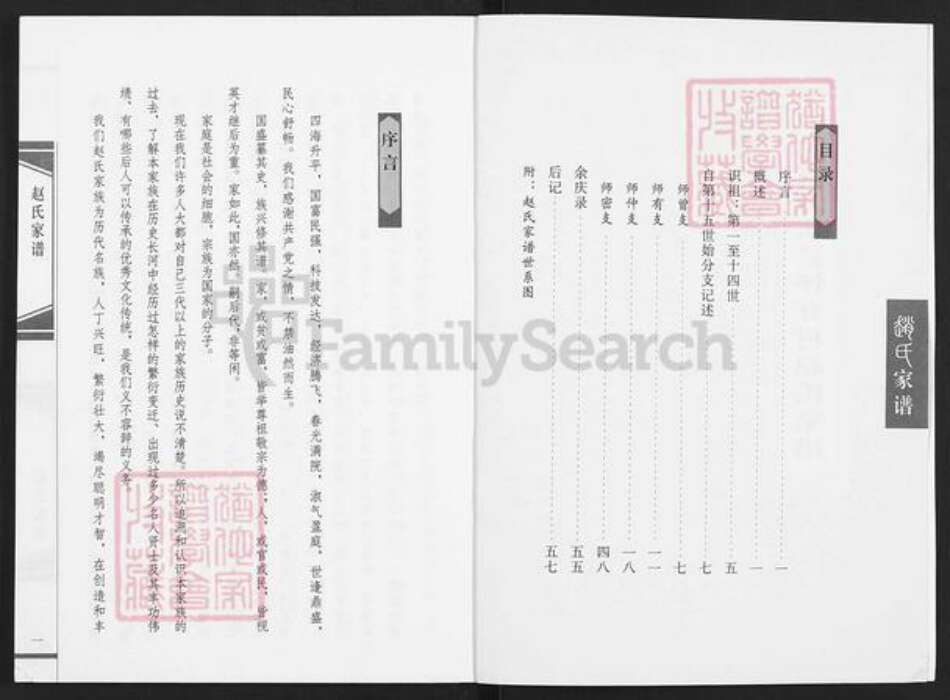 目录
序言 一
概述 一
识祖：第一至十四世 五
自第十五世始分支记述 七
师曾支 七
师有支 一一
师仲支 一八
师密支 四八
余庆录 五五
后记 五七
附：赵氏家谱世系图
赵氏家谱
序言
四海升平，国富民强，科技发达，经济腾飞，春光满院，淑气盈庭，世逢鼎盛，
民心舒畅。我们感谢共产党之情，不禁油然而生。
国盛纂其史，族兴修其谱。家，或贫或富，皆举尊祖敬宗为德；人，或官或民，皆视
英才继后为重。家如此，国亦然。嗣后代，非等闲。
家庭是社会的细胞，宗族为国家的分子。
现在我们许多人大都对自己三代以上的家族历史说不清楚。所以追溯和认识本家族的
过去，了解本家族在历史长河中经历过怎样的繁衍变迁、出现过多少名人贤士及其丰功伟
绩、有哪些后人可以传承的优秀文化传统，是我们义不容辞的义务。
我们赵氏家族为历代名族，人丁兴旺，繁衍壮大，竭尽聪明才智，在创造和丰
赵氏家谱
一
FamilySearch